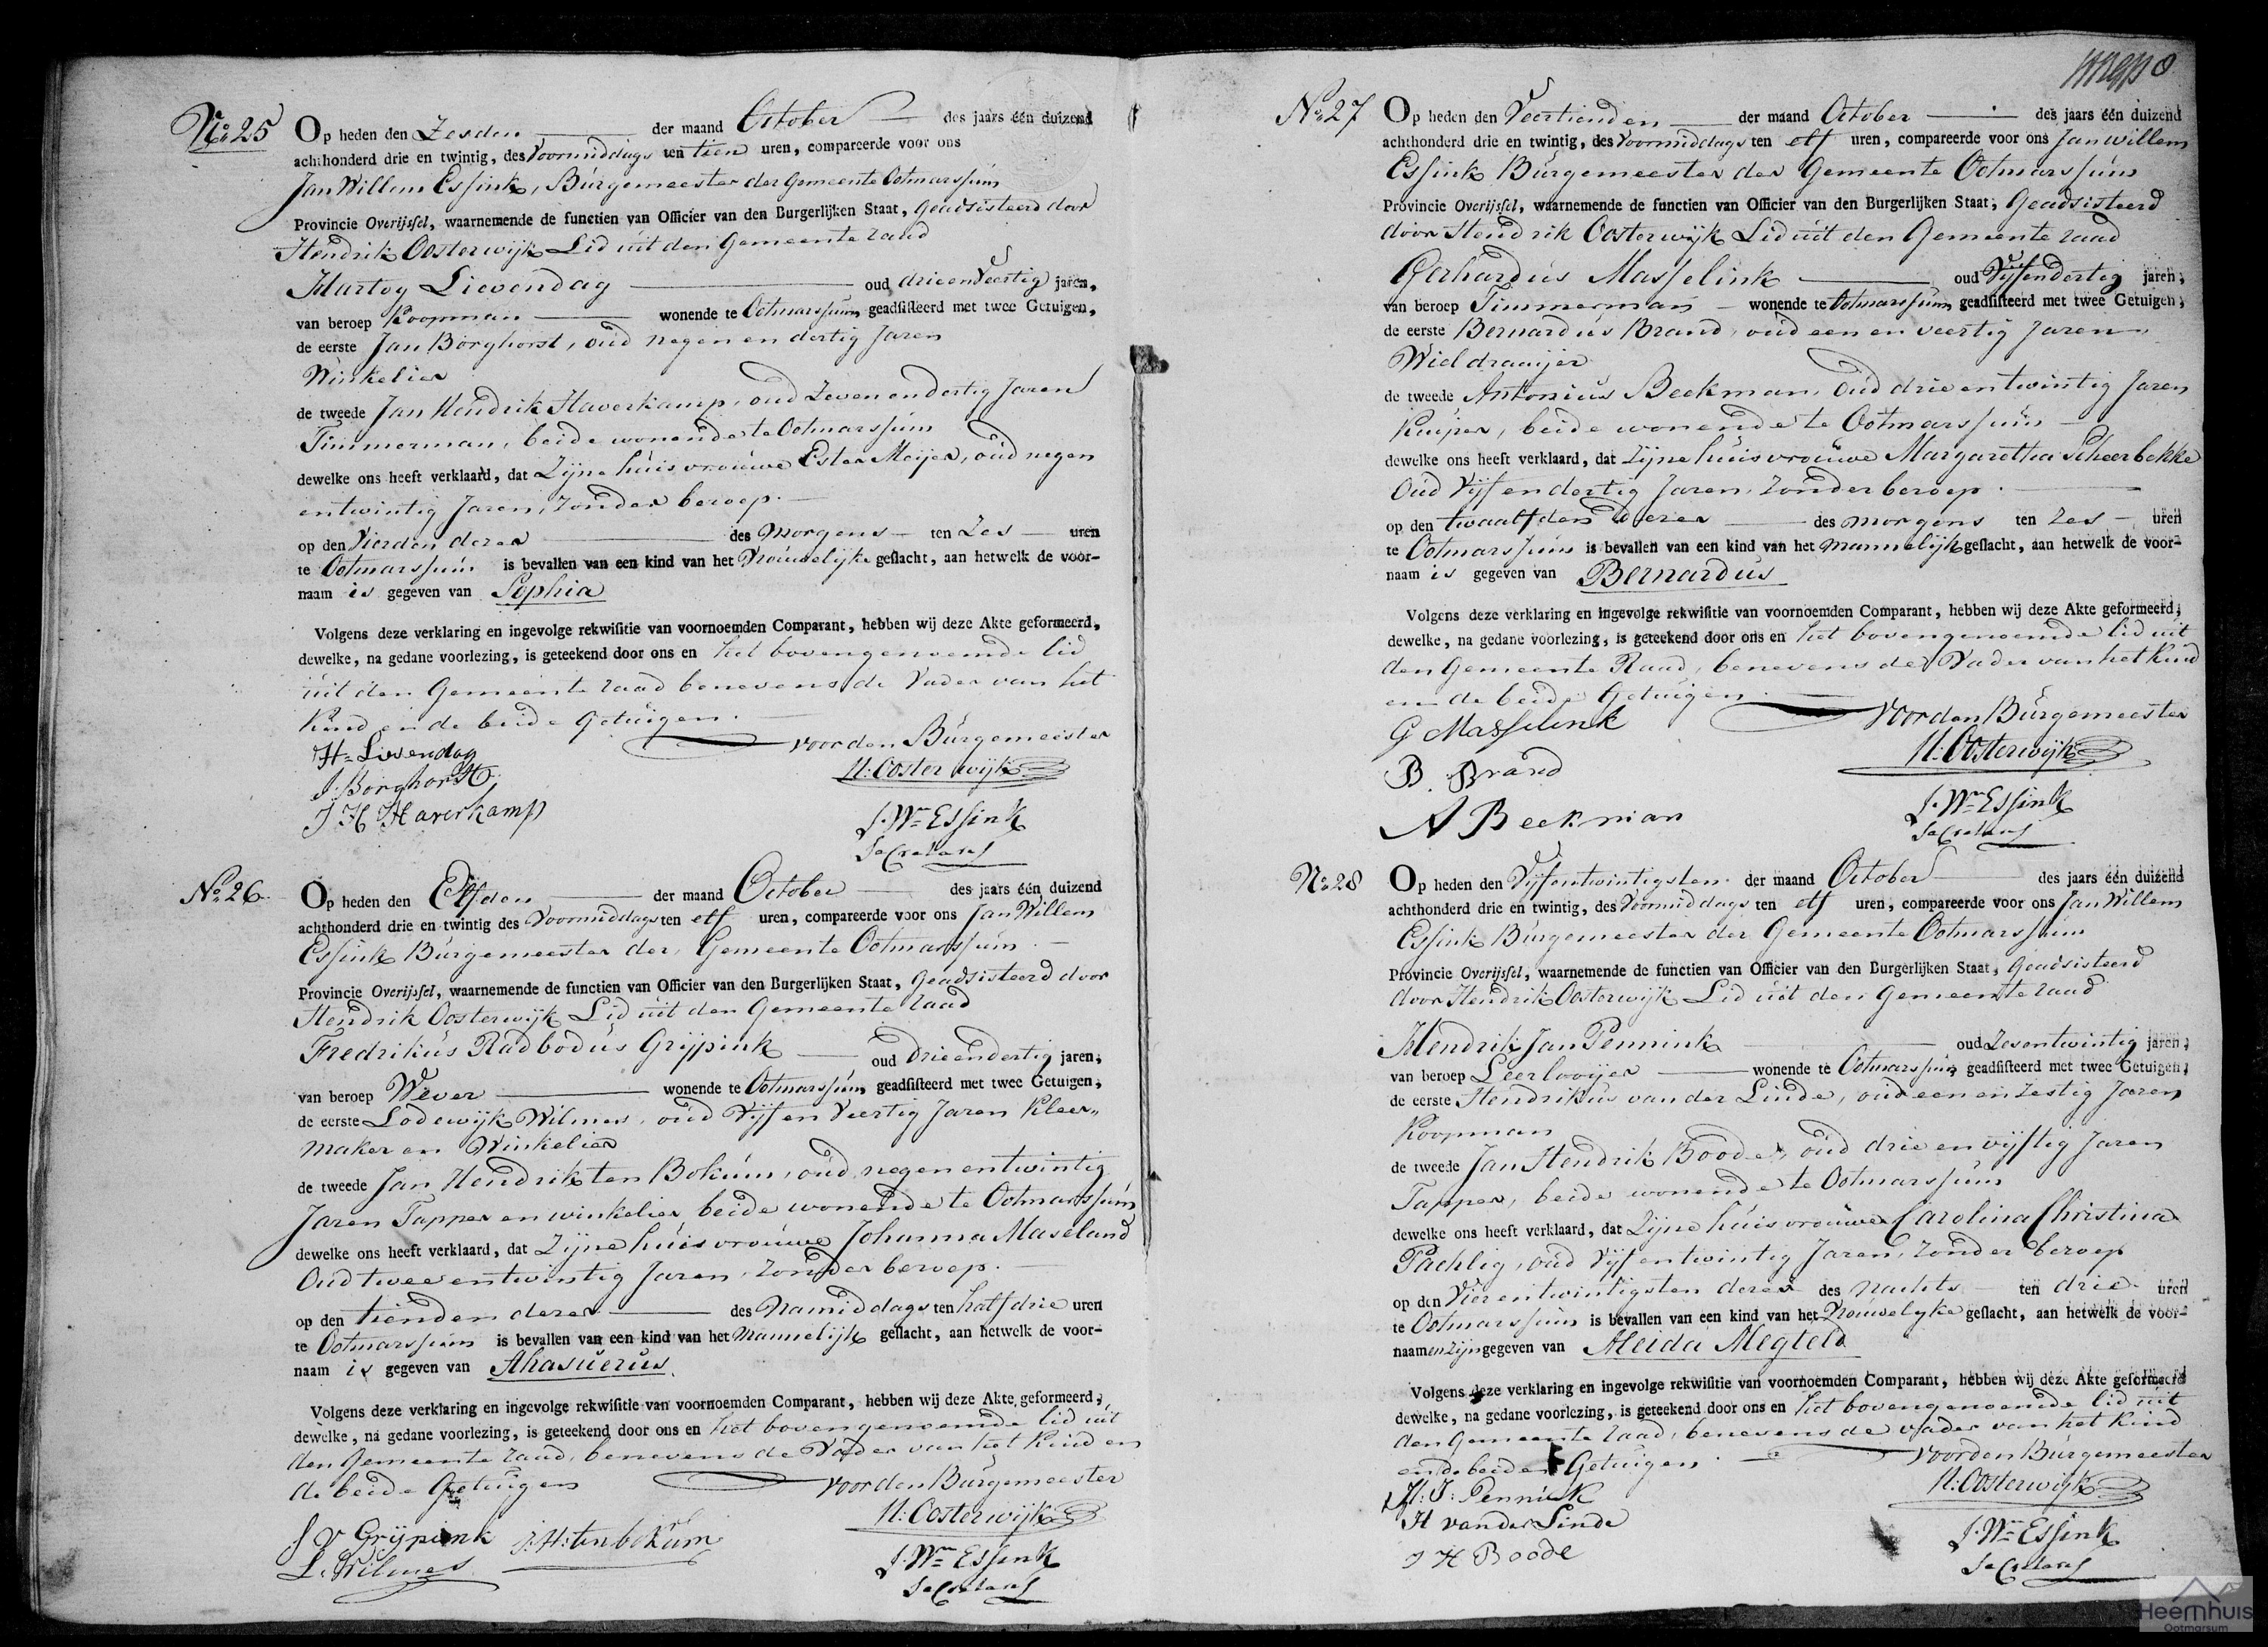 No 25
Op heden den Zesden der maand October des jaars één duizend
achthonderd drie en twintig, des Voormiddags ten tien uren, compareerde voor ons
Jan Willem Essink, Burgemeester der Gemeente Ootmarssum
Provincie Overijssel, waarnemende de functien van Officier van den Burgerlijken Staat, Geadsisteerd door
Hendrik Oosterwijk Lid uit den Gemeente raad
Hartog Lievendag oud drieenveertig jaren,
van beroep Koopman wonende te Ootmarssum, geadsisteerd met twee Getuigen,
de eerste Jan Borghorst, oud negen en dertig Jaren
Winkelier
de tweede Jan Hendrik Haverkamp, oud Zeven en dertig Jaren
Timmerman, beide wonende te Ootmarssum
dewelke ons heeft verklaard, dat Zijne huisvrouwe Ester Meijer, oud negen
entwintig Jaren, Zonder beroep.
op den Vierden dezer des Morgens ten Zes uren
te Ootmarssum is bevallen van een kind van het Vrouwelijke geslacht, aan hetwelk de voor-
naam is gegeven van Sophia
Volgens deze verklaring en ingevolge rekwisitie van voornoemden Comparant, hebben wij deze Akte geformeerd,
dewelke, na gedane voorlezing, is geteekend door ons en het bovengenoemde lid
uit den Gemeente raad benevens de Vader van het
Kind en de beide Getuigen.
H= Livendag
J: Borghorst
J H Haverkamp
voor den Burgemeester
H: Oosterwijk
J. Wm Essink
Secretaris
No 26
Op heden den Elfden der maand October des jaars één duizend
achthonderd drie en twintig des Voormiddags ten elf uren, compareerde voor ons Jan Willem
Essink Burgemeester der Gemeente Ootmarssum
Provincie Overijssel, waarnemende de functien van Officier van den Burgerlijken Staat, Geadsisteerd door
Hendrik Oosterwijk Lid uit den Gemeente raad
Fredrikus Radbodus Grijpink oud drieendertig jaren,
van beroep Wever wonende te Ootmarssum, geadsisteerd met twee Getuigen,
de eerste Lodewijk Wilmes, oud Vijf en Veertig Jaren Kleer„
maker en Winkelier
de tweede Jan Hendrik ten Bokum, oud negen entwintig
Jaren Tapper en winkelier beide wonende te Ootmarssum
dewelke ons heeft verklaard, dat Zijne huisvrouwe Johanna Maseland
Oud twee entwintig Jaren, Zonder beroep.
op den tienden dezer des Namiddags ten half drie uren
te Ootmarssum is bevallen van een kind van het Mannelijk geslacht, aan hetwelk de voor-
naam is gegeven van Ahasuerus.
Volgens deze verklaring en ingevolge rekwisitie van voornoemden Comparant, hebben wij deze Akte geformeerd,
dewelke, na gedane voorlezing, is geteekend door ons en het bovengenoemde lid uit
den Gemeente raad, benevens de Vader van het Kind en
de beide Getuigen
Grijpink J: H: ten bokum
L. Wilmes
voor den Burgemeester
H: Oosterwijk
J. Wm Essink
Secretaris
No 27
Op heden den Veertienden der maand October des jaars één duizend
achthonderd drie en twintig, des Voormiddags ten elf uren, compareerde voor ons Jan willem
Essink Burgemeester der Gemeente Ootmarssum
Provincie Overijssel, waarnemende de functien van Officier van den Burgerlijken Staat, Geadsisteerd
door Hendrik Oosterwijk Lid uit den Gemeente raad
Gerhardus Masselink oud Vijfendertig jaren,
van beroep Timmerman wonende te Ootmarssum, geadsisteerd met twee Getuigen,
de eerste Bernardus Brand, oud een en veertig Jaren
Wieldraaijer
de tweede Antonius Beekman, Oud drie entwintig Jaren
Kuiper, beide wonende te Ootmarssum
dewelke ons heeft verklaard, dat Zijne huisvrouwe Margaretha Scheerbekke
Oud Vijf en dertig Jaren, Zonder beroep.
op den twaalfden dezer des morgens ten Zes uren
te Ootmarssum is bevallen van een kind van het Mannelijk geslacht, aan hetwelk de voor-
naam is gegeven van Bernardus
Volgens deze verklaring en ingevolge rekwisitie van voornoemden Comparant, hebben wij deze Akte geformeerd,
dewelke, na gedane voorlezing, is geteekend door ons en het bovengenoemde lid uit
den Gemeente Raad, benevens de Vader van het Kind
en de beide Getuigen.
G Masselink
B. Brand
A Beekman
voor den Burgemeester
H: Oosterwijk
J. Wm Essink
Secretaris
No 28
Op heden den Vijfentwintigsten der maand October des jaars één duizend
achthonderd drie en twintig, des Voormiddags ten elf uren, compareerde voor ons Jan Willem
Essink Burgemeester der Gemeente Ootmarssum
Provincie Overijssel, waarnemende de functien van Officier van den Burgerlijken Staat, Geadsisteerd
door Hendrik Oosterwijk Lid uit den Gemeente raad
Hendrik Jan Pennink oud Zesentwintig jaren,
van beroep Leerlooijer wonende te Ootmarssum, geadsisteerd met twee Getuigen,
de eerste Hendrikus van der Linde, oud een en Zestig Jaren
Koopman
de tweede Jan Hendrik Boode, oud drie en vijftig Jaren
Tapper, beide wonende te Ootmarssum
dewelke ons heeft verklaard, dat Zijne huisvrouwe Carolina Christina
Pachlig, oud Vijf entwintig Jaren, Zonder beroep
op den Vier entwintigsten dezer des nachts ten drie uren
te Ootmarssum is bevallen van een kind van het Vrouwelyke geslacht, aan hetwelk de voor-
naamen zijn gegeven van Aleida Megteld
Volgens deze verklaring en ingevolge rekwisitie van voornoemden Comparant, hebben wij deze Akte geformeerd
dewelke, na gedane voorlezing, is geteekend door ons en het bovengenoemde lid uit
den Gemeente raad, benevens de vader van het Kind
en de beide Getuigen.
H: J: Pennink
H van der Linde
J H Boode
voor den Burgemeester
H: Oosterwijk
J. Wm Essink
Secretaris
Heemhuis
Ootmarsum